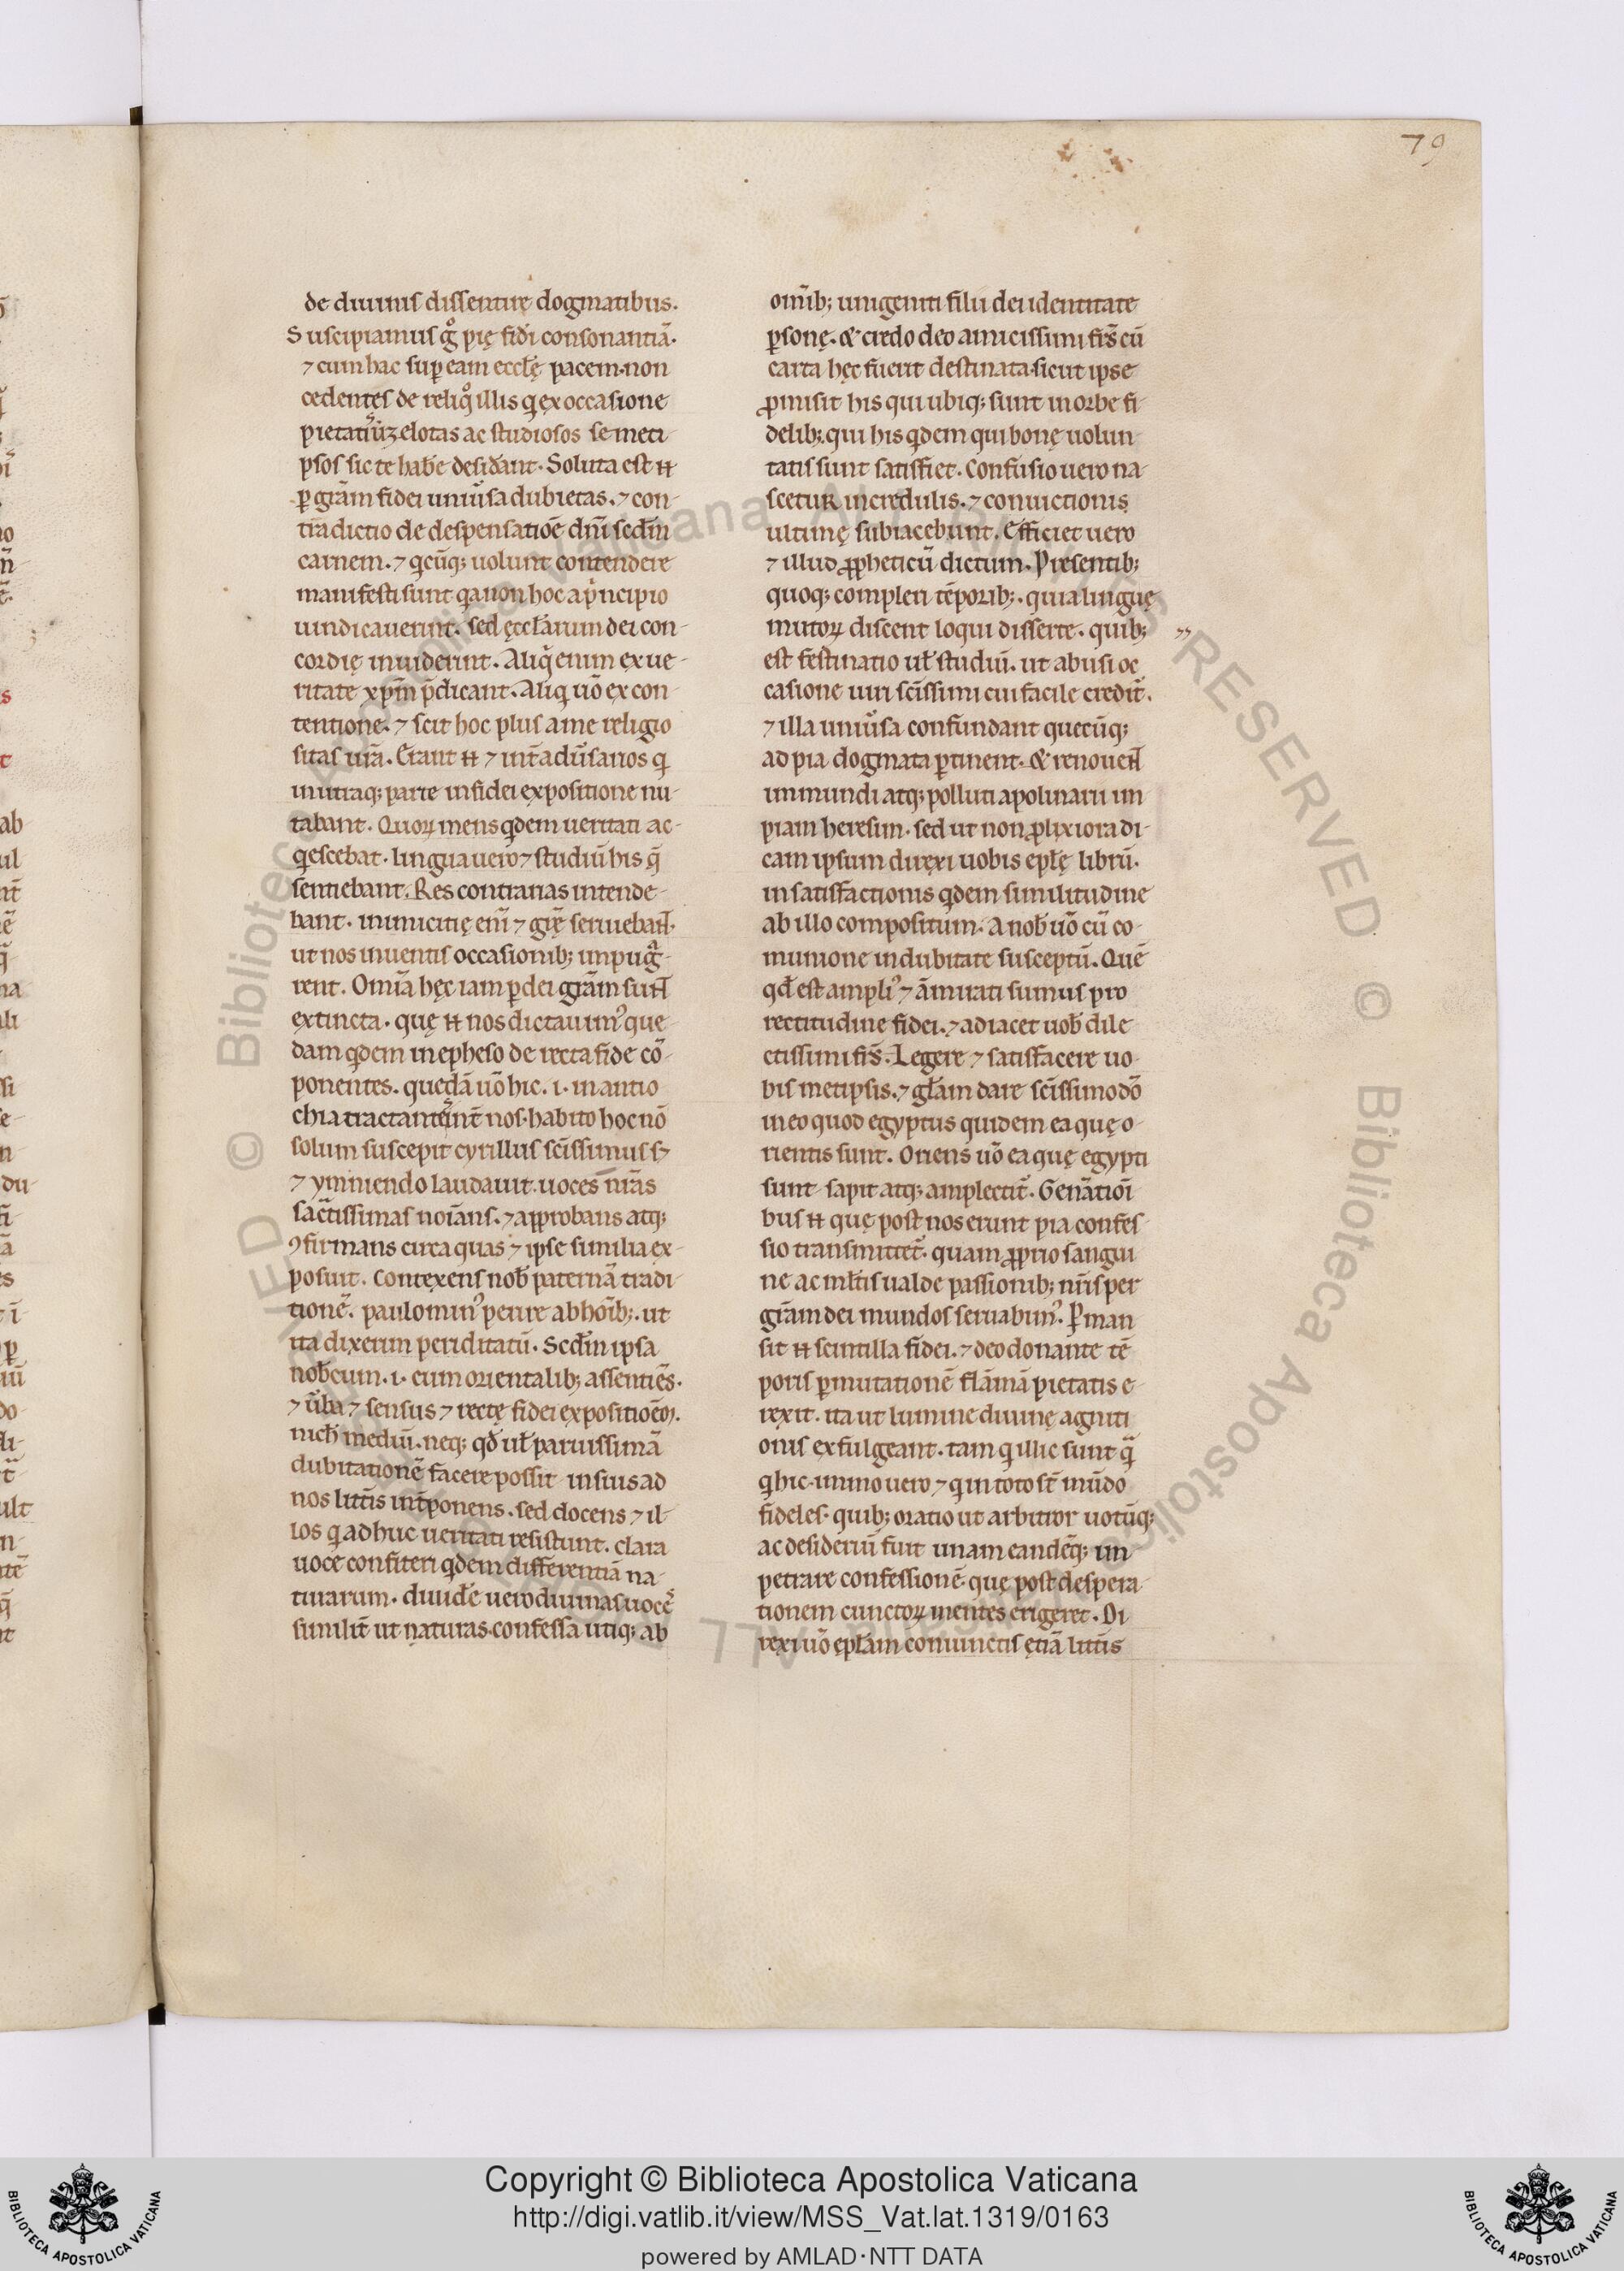 79
de diuinis dissentire dogmatibus.
Suscipiamus gͦ pię fidi consonantiā.
⁊ cum hac suꝑ eam eccłę pacem. non
cedentes de reliqͦ illis q ex occasione
zelotas ac studiosos semeti
psos sic te hab̄e desid̄ant. Soluta est
ꝑ gr̄am fidei uniūsa dubietas. ⁊ con-
tradictio de despensatiōe dn̄i scd̄m
carnem. ⁊ qcūq; uolunt contendere
manifesti sunt qa non hoc a pͥncipio
uindicauerint. sed ęccl̄arum dei con-
cordię inuiderint. Aliq̄ enim ex ue-
ritate xp̄m p̄dicant. Aliq uō ex con-
tentione. ⁊ scit hoc plus a me religio
sitas ur̄a. Erant ⁊ int̄ adūsarios q
in utraq; parte in fidei expositione nu-
tabant. Quoꝝ mens qdem ueritati ac-
qescebat. lingua uero ⁊ studiū his q̄
sentiebant. Res contrarias intende-
bant. inimicitię eni᷒ ⁊ girę seruiebant.
ut nos inuentis occasionib; inpugͣ-
rent. Omīa hęc iam ꝑ dei gr̄am sunt
extincta. quę nos dictauim᷒ que
dam qdem in epheso de recta fide cō-
ponentes. quedā uō hic. i. in antio
chia nos. habito hoc nō
solum suscepit cyrillus sc̄issimus
⁊ ymniendo laudauit. uoces nr̄as
sāctissimas noīans. ⁊ approbans atq;
ꝯfirmans circa quas ⁊ ipse similia ex-
posuit. Contexens nob̄ paternā tradi-
tionē. paulomin᷒ perire ab hoīb;. ut
ita dixerim periditatū. Scd̄m ipsa
nob̄cum. i. cum orientalib; assentiēs.
⁊ ūba ⁊ sensus ⁊ rectę fidei
nich̄ mediū. neq; qd̄ uł paruissimā
dubitationē facere possit insius ad
nos litt̄is int̄ponens. sed docens ⁊ il-
los q adhuc ueritati resistunt. clara
uoce confiteri qdem differentiā na-
turarum. diuid̄e uero diuinas uoces
similit̄ ut naturas. confessa utiq; ab
om̄ib; unigeniti filii dei identitate
ꝑsonę. & credo deo amicissimi fr̄s cū
carta hęc fuerit destinata. sicut ipse
ꝓmisit his qui ubiq; sunt in orbe fi-
delib;. qui his qdem qui bonę uolun-
tatis sunt satisfiet. Confusio uero na-
scetur incredulis. ⁊ conuictionis
ultimę subiacebunt. Efficiet uero
⁊ illud ꝓpheticū dictum. Presentib;
quoq; compleri tēporib;. quia linguę
mutoꝝ discent loqui disserte. quib;
est festinatio uł studiū. ut abusi oc
casione uiri sc̄issimi cui facile credit̄.
⁊ illa uniūsa confundant quecūq;
ad pia dogmata ꝑtinent. & renouent
inmundi atq; polluti apolinarii im
piam heresim. sed ut non ꝓlixiora di-
cam ipsum direxi uobis epłę librū.
in satisfactionis qdem similitudine
ab illo compositum. A nob̄ uō cū co-
munione indubitate susceptū. Quē
qd̄ est ampli᷒ ⁊ āmirati sumus pro
rectitudine fidei. ⁊ adiacet uob̄ dile
ctissimi fr̄s. Legere ⁊ satisfacere uo-
bis metipsis. ⁊ głam dare sc̄issimo dō
in eo quod egyptus quidem ea quę o-
rientis sunt. Oriens uō ea quę egypti
sunt sapit atq; amplectit̄. Gen̄atioī
bus quę post nos erunt pia confes-
sio transmittet̄. quam ꝓprio sangui
ne ac młtis ualde passionib; nr̄is per
gr̄am dei mundos seruabim᷒. Ꝑman
sit scintilla fidei. ⁊ deo donante tē
poris ꝑmutationē flāmā pietatis e-
rexit. ita ut lumine diuinę agniti
onis exfulgeant. tam q illic sunt qͣ
q hic. immo uero ⁊ q in toto st̄ mūdo
fideles. quib; oratio ut arbitror uotūq;
ac desideriū fuit unam eandēq; im
petrare confessionē. quę post despera-
tionem cunctoꝝ mentes erigeret. Di
rexi uō epłam coniunctis ętiā litt̄is
Copyright © Biblioteca Apostolica Vaticana
http://digi.vatlib.it/view/MSS_Vat.lat.1319/0163
powered by AMLAD·NTT DATA